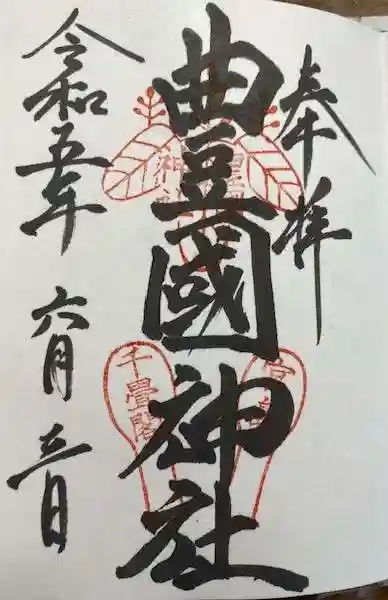 奉拝
豊國神社
令和五年 六月 三日
千畳閣